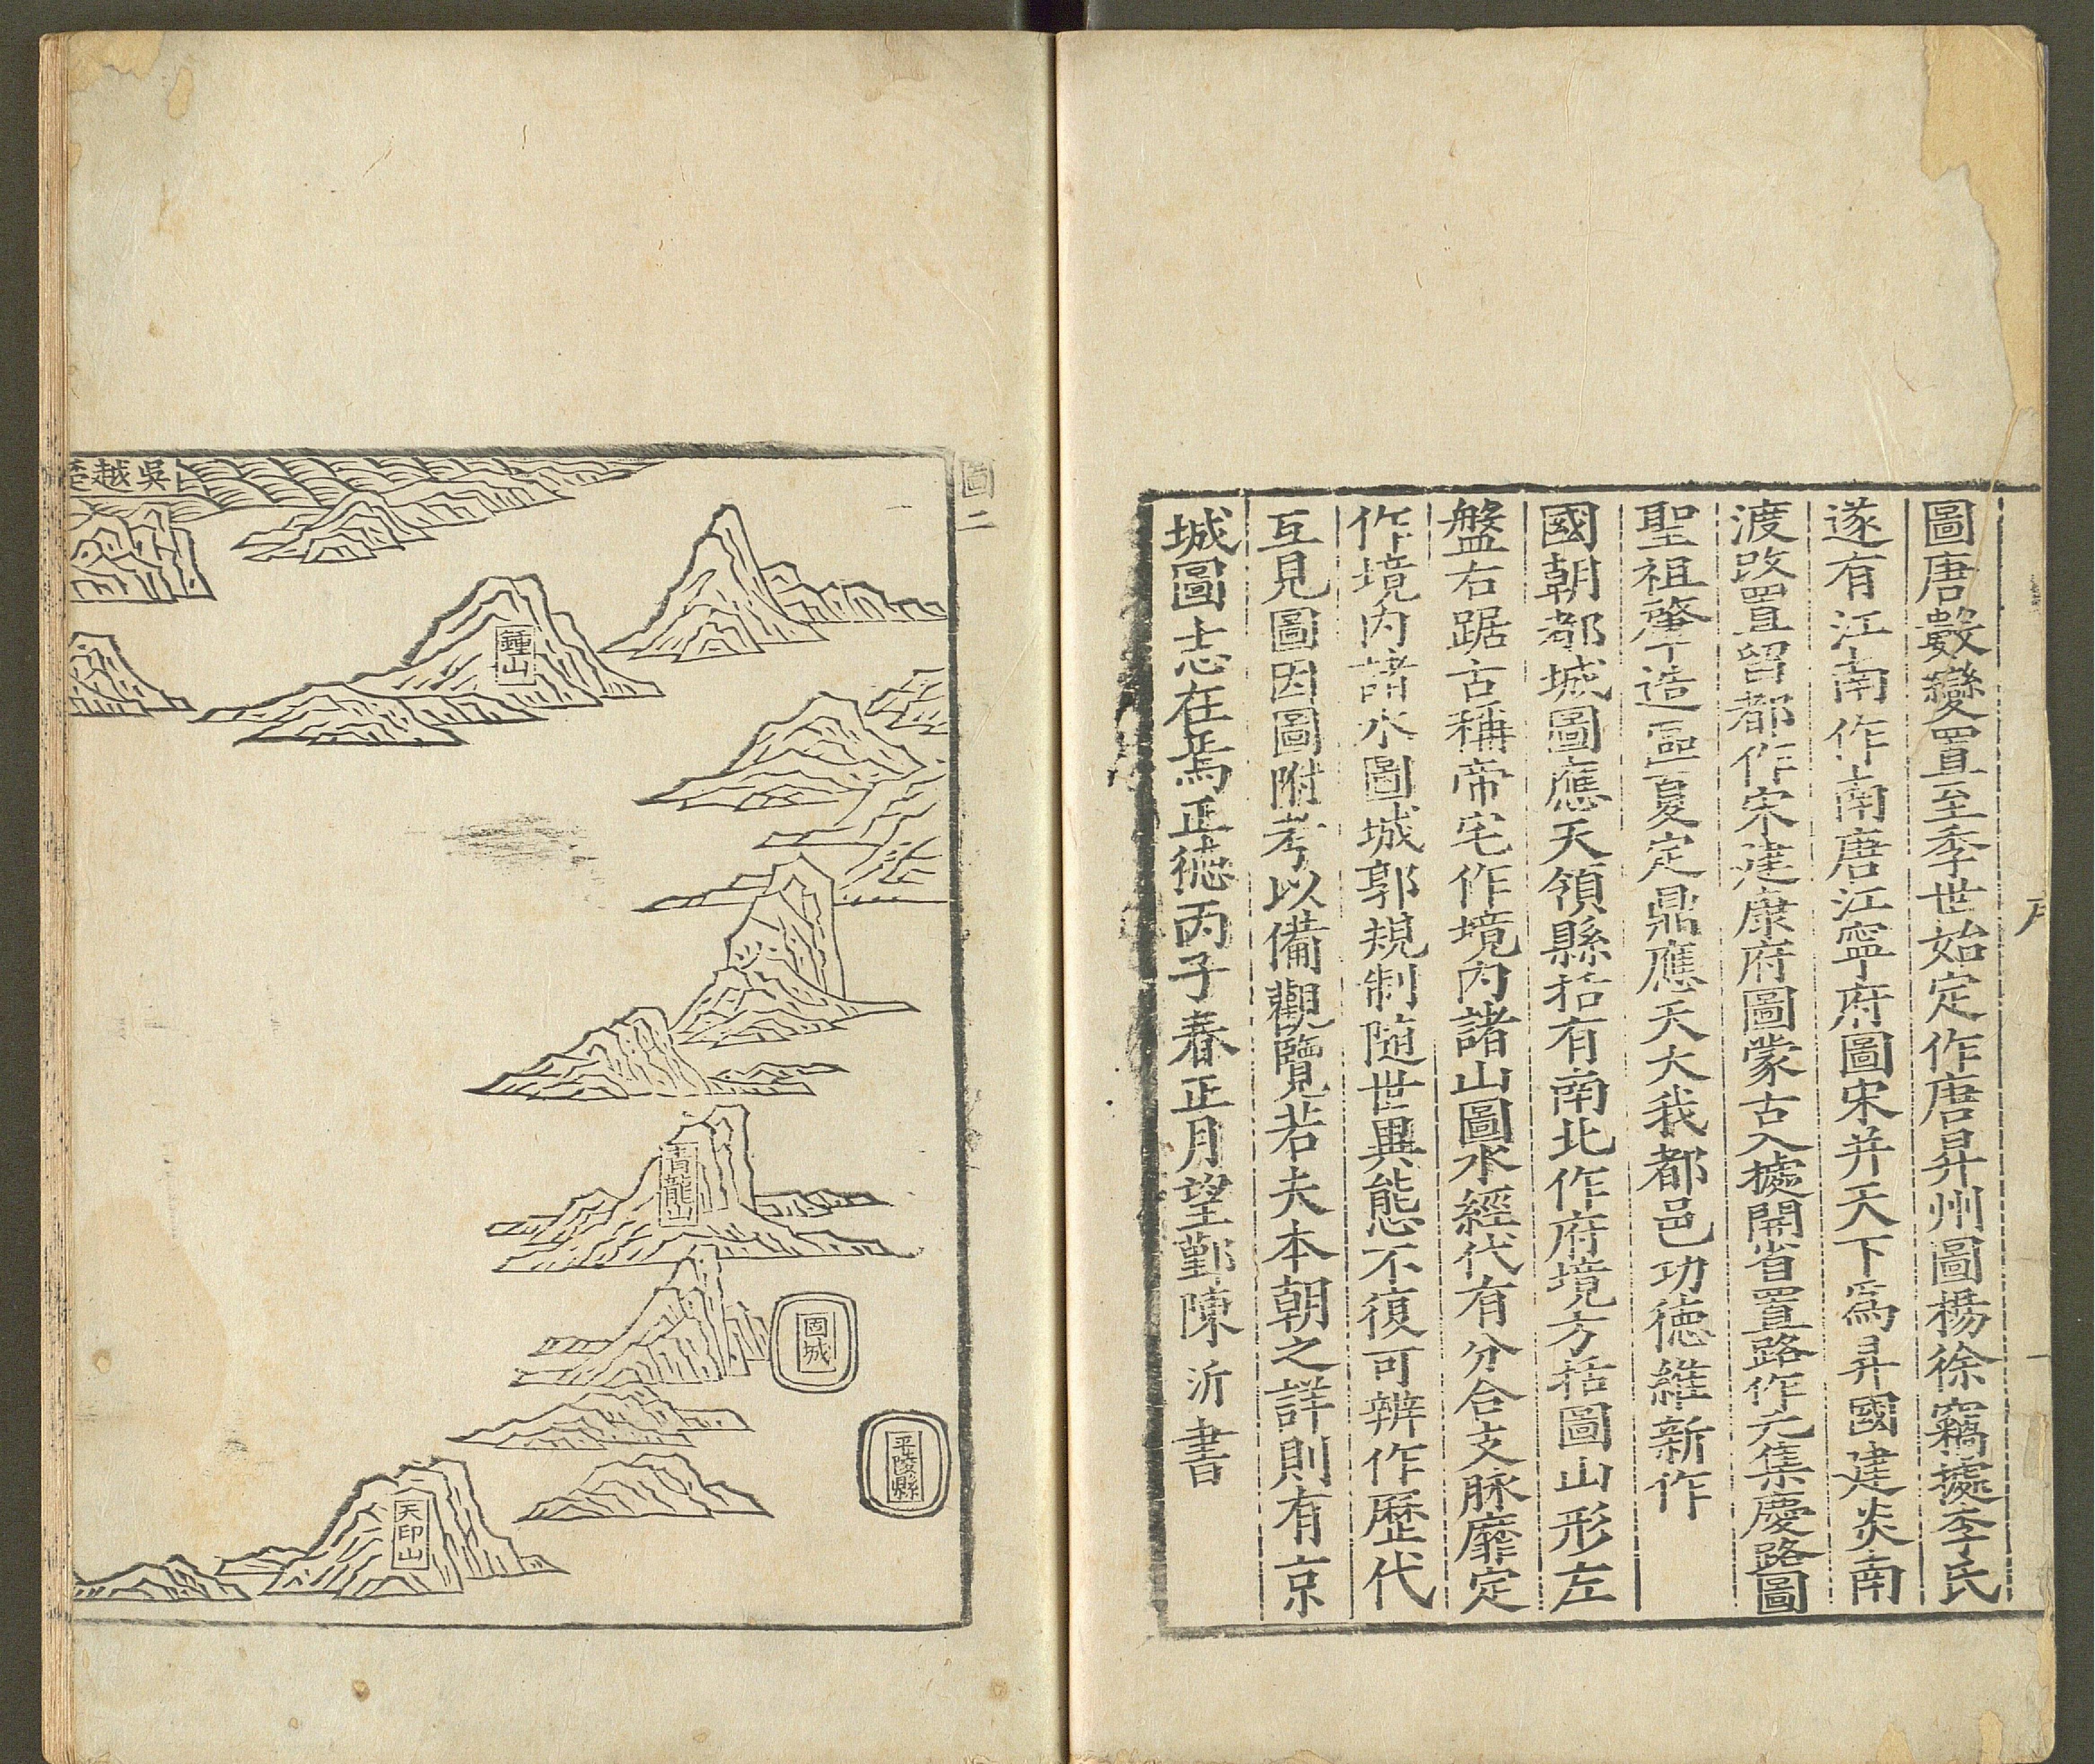 圖唐數變置至季世始定作唐昇州圖楊徐竊據李氏
遂有江南作南唐江寧府圖宋并天下爲昇國建炎南
渡改置留都作宋建康府圖蒙古入據開省置路作元集慶路圖
聖祖肇造區夏定鼎應天大我都邑功德維新作
國朝都城圖應天領縣括有南北作府境方括圖山形左
盤右踞古稱帝宅作境內諸山圖水經代有分合支脉靡定
作境內諸水圖城郭規制隨世異態不復可辨作歷代
互見圖因圖附考以備觀覽若夫本朝之詳則有京
城圖志在焉正德丙子春正月望鄞陳沂書
圖二
吳越楚
鍾山
青龍山
固城
平陵縣
天印山